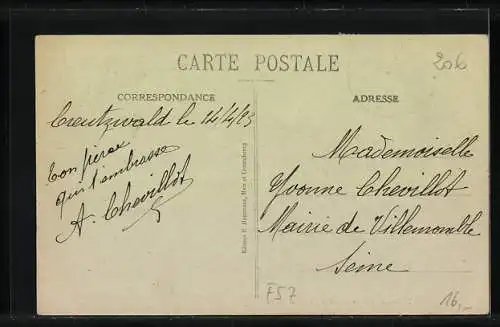 CARTE POSTALE
206
CORRESPONDANCE
ADRESSE
Creutzwald le 14/4/23
Ton frère
qui t'embrasse
A. Chevillot
Mademoiselle
Yvonne Chevillot
Mairie de Villemomble
Seine
Metz et Luxembourg
F57
16,-